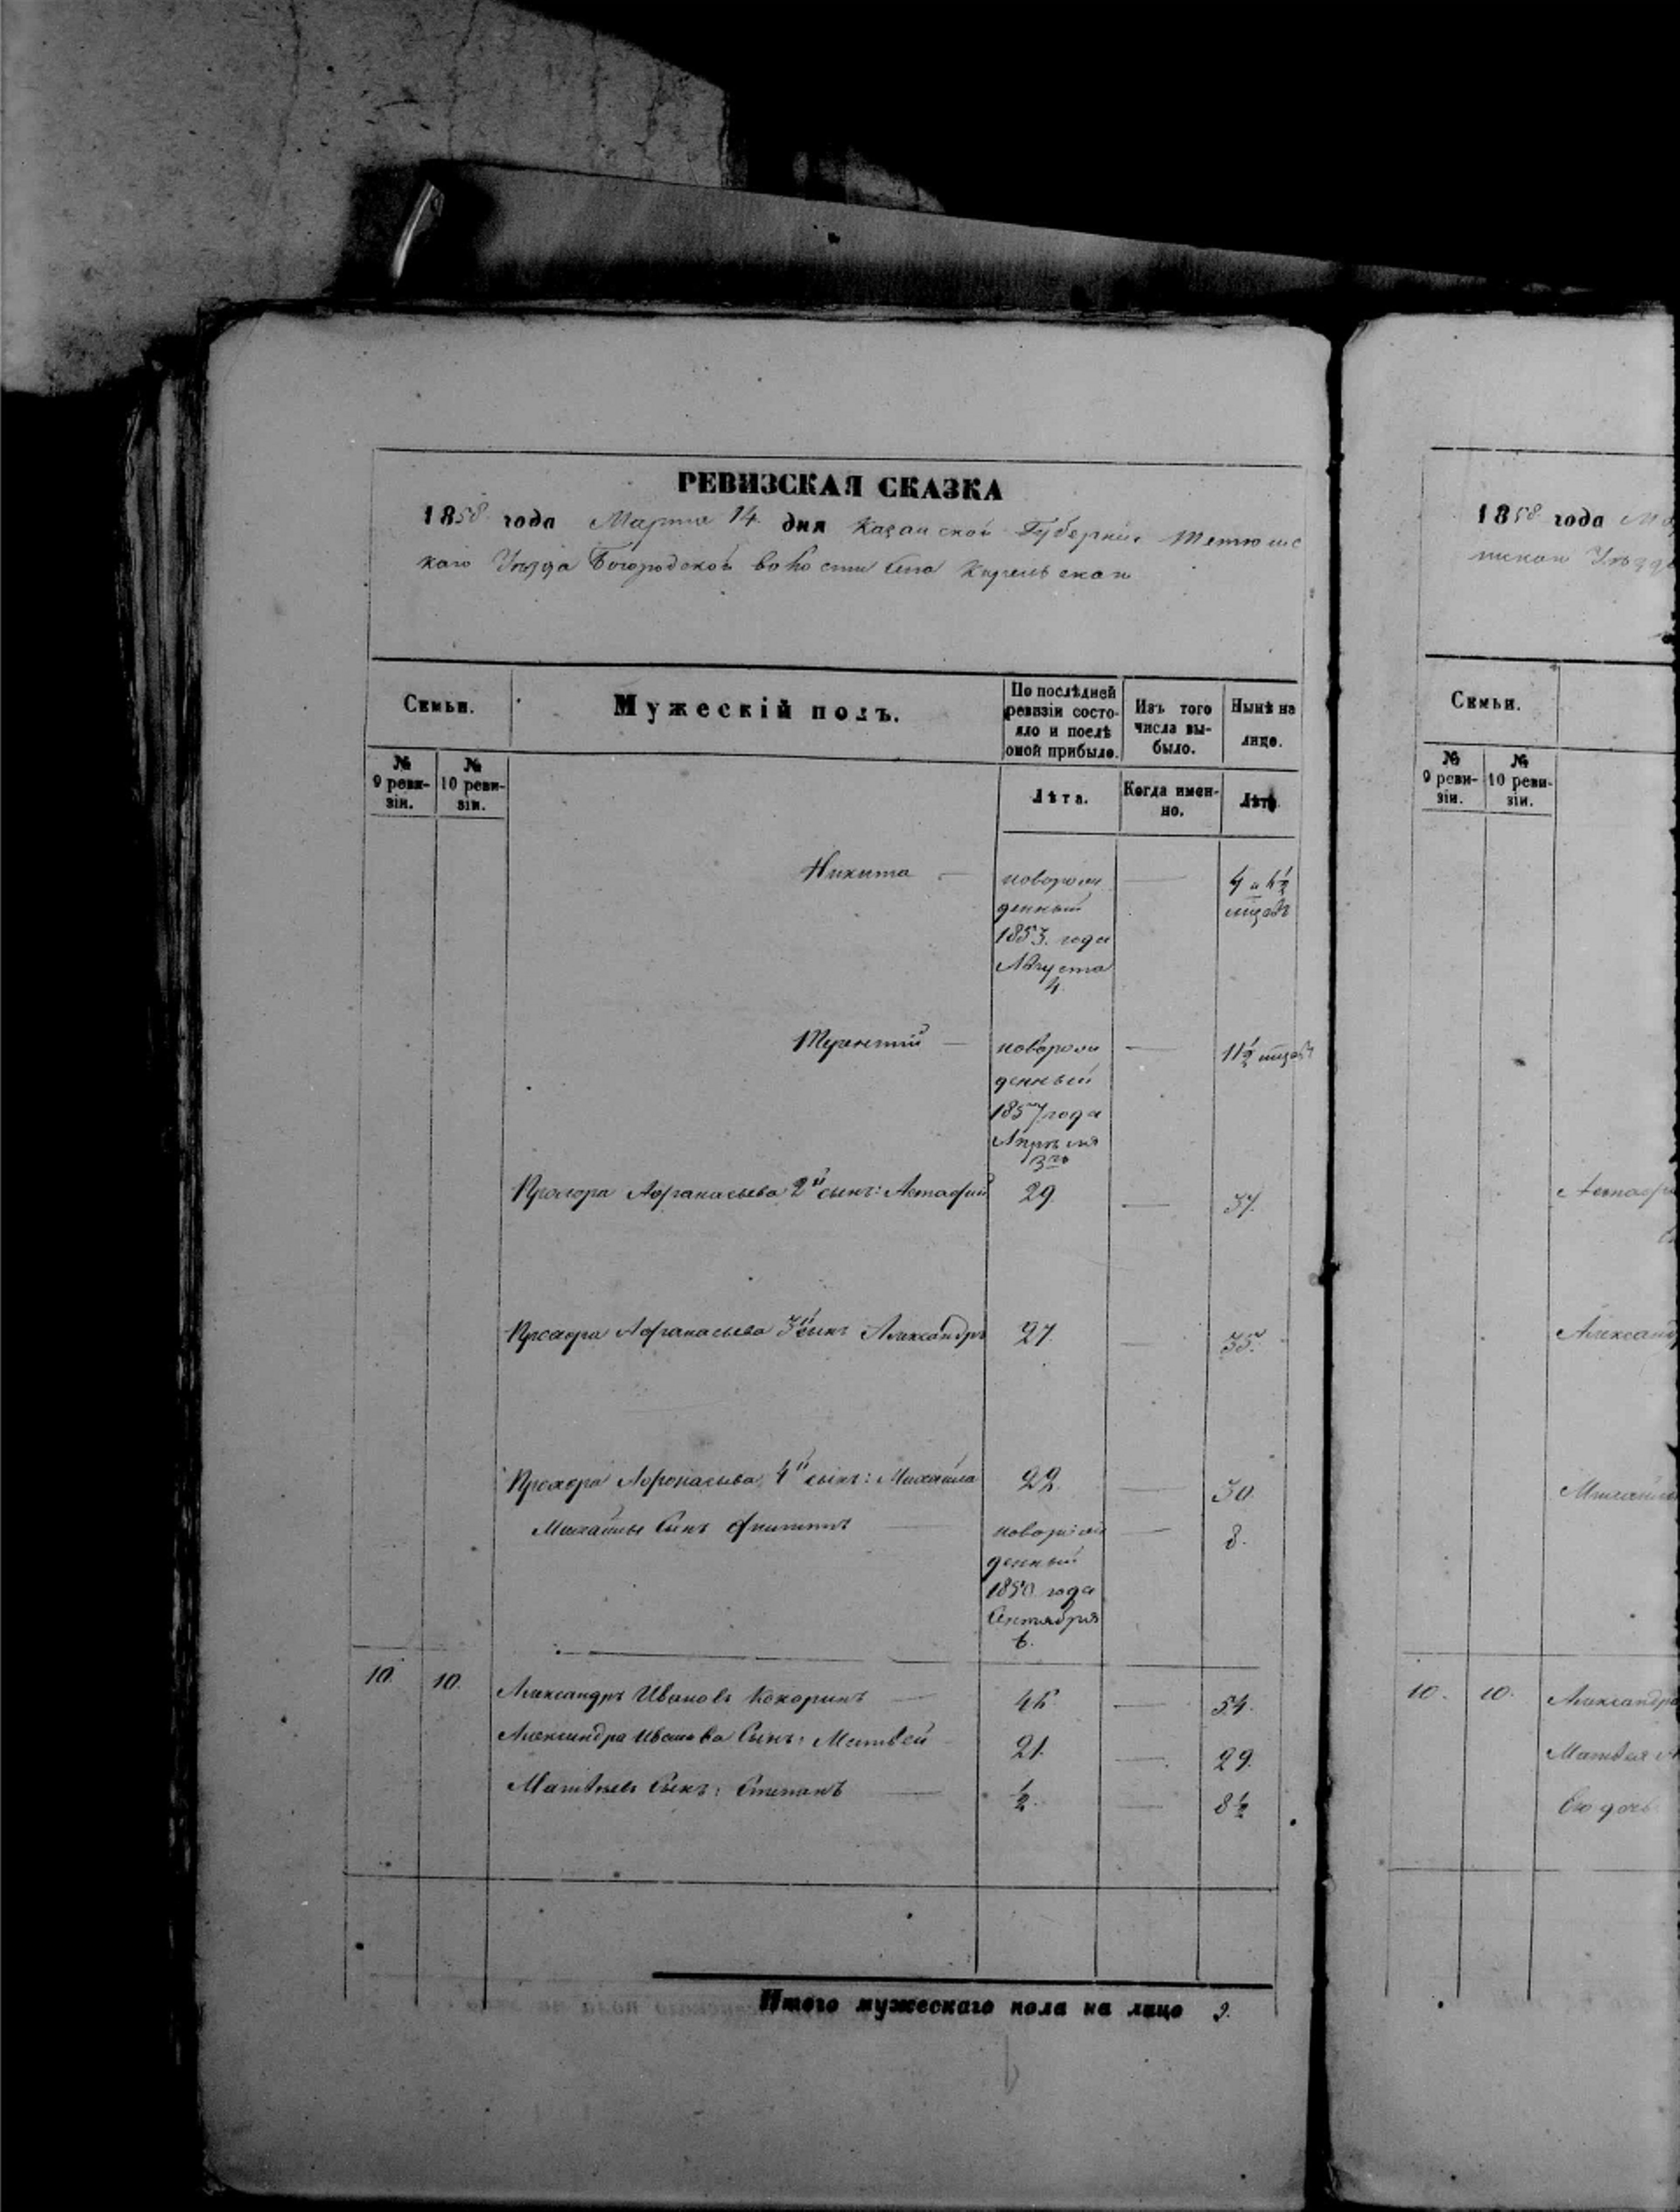 РЕВИЗСКАЯ СКАЗКА
1858 года Марта 14 дня Казанской Губернiи Тетюшс
каго Уѣзда Богородской волости села
Семьи.
Мужескiй полъ.
По послѣдней ревизiи состо-
яло и послѣ
оной прибыло.
Изъ того
числа вы-
было.
Нынѣ на
лицо.
№
9 реви-
зiи.
№
10 реви-
зiи.
Лѣта.
Когда имен-
но.
Лѣта
Никита — новорож — 4 и
денный
1853. года
Августа
4.
Терентiй — новорож — 11½
денный
1857 года
Апрѣля
3го
Прохора Афанасьева 2й сынъ: Астафiй 29. — 37.
Прохора Афанасьева 3й сынъ Александръ 27. — 35.
Прохора Афонасьева 4й сынъ: Михайла 22. — 30.
Михайлы Сынъ Филиппъ — новорож — 8.
денный
1850 года
Сентября
6.
10. 10. Александръ Ивановъ Кокоринъ — 46. — 54.
Александра Иванова Сынъ: Матвей 21. — 29.
Матвѣевъ Сынъ: Степанъ — ½. — 8½
Итого мужескаго пола на лицо 9.
1858 года
Уѣзда
Семьи.
№
9 реви-
зiи.
№
10 реви-
зiи.
10. 10. Александра
Матвея
Его дочь